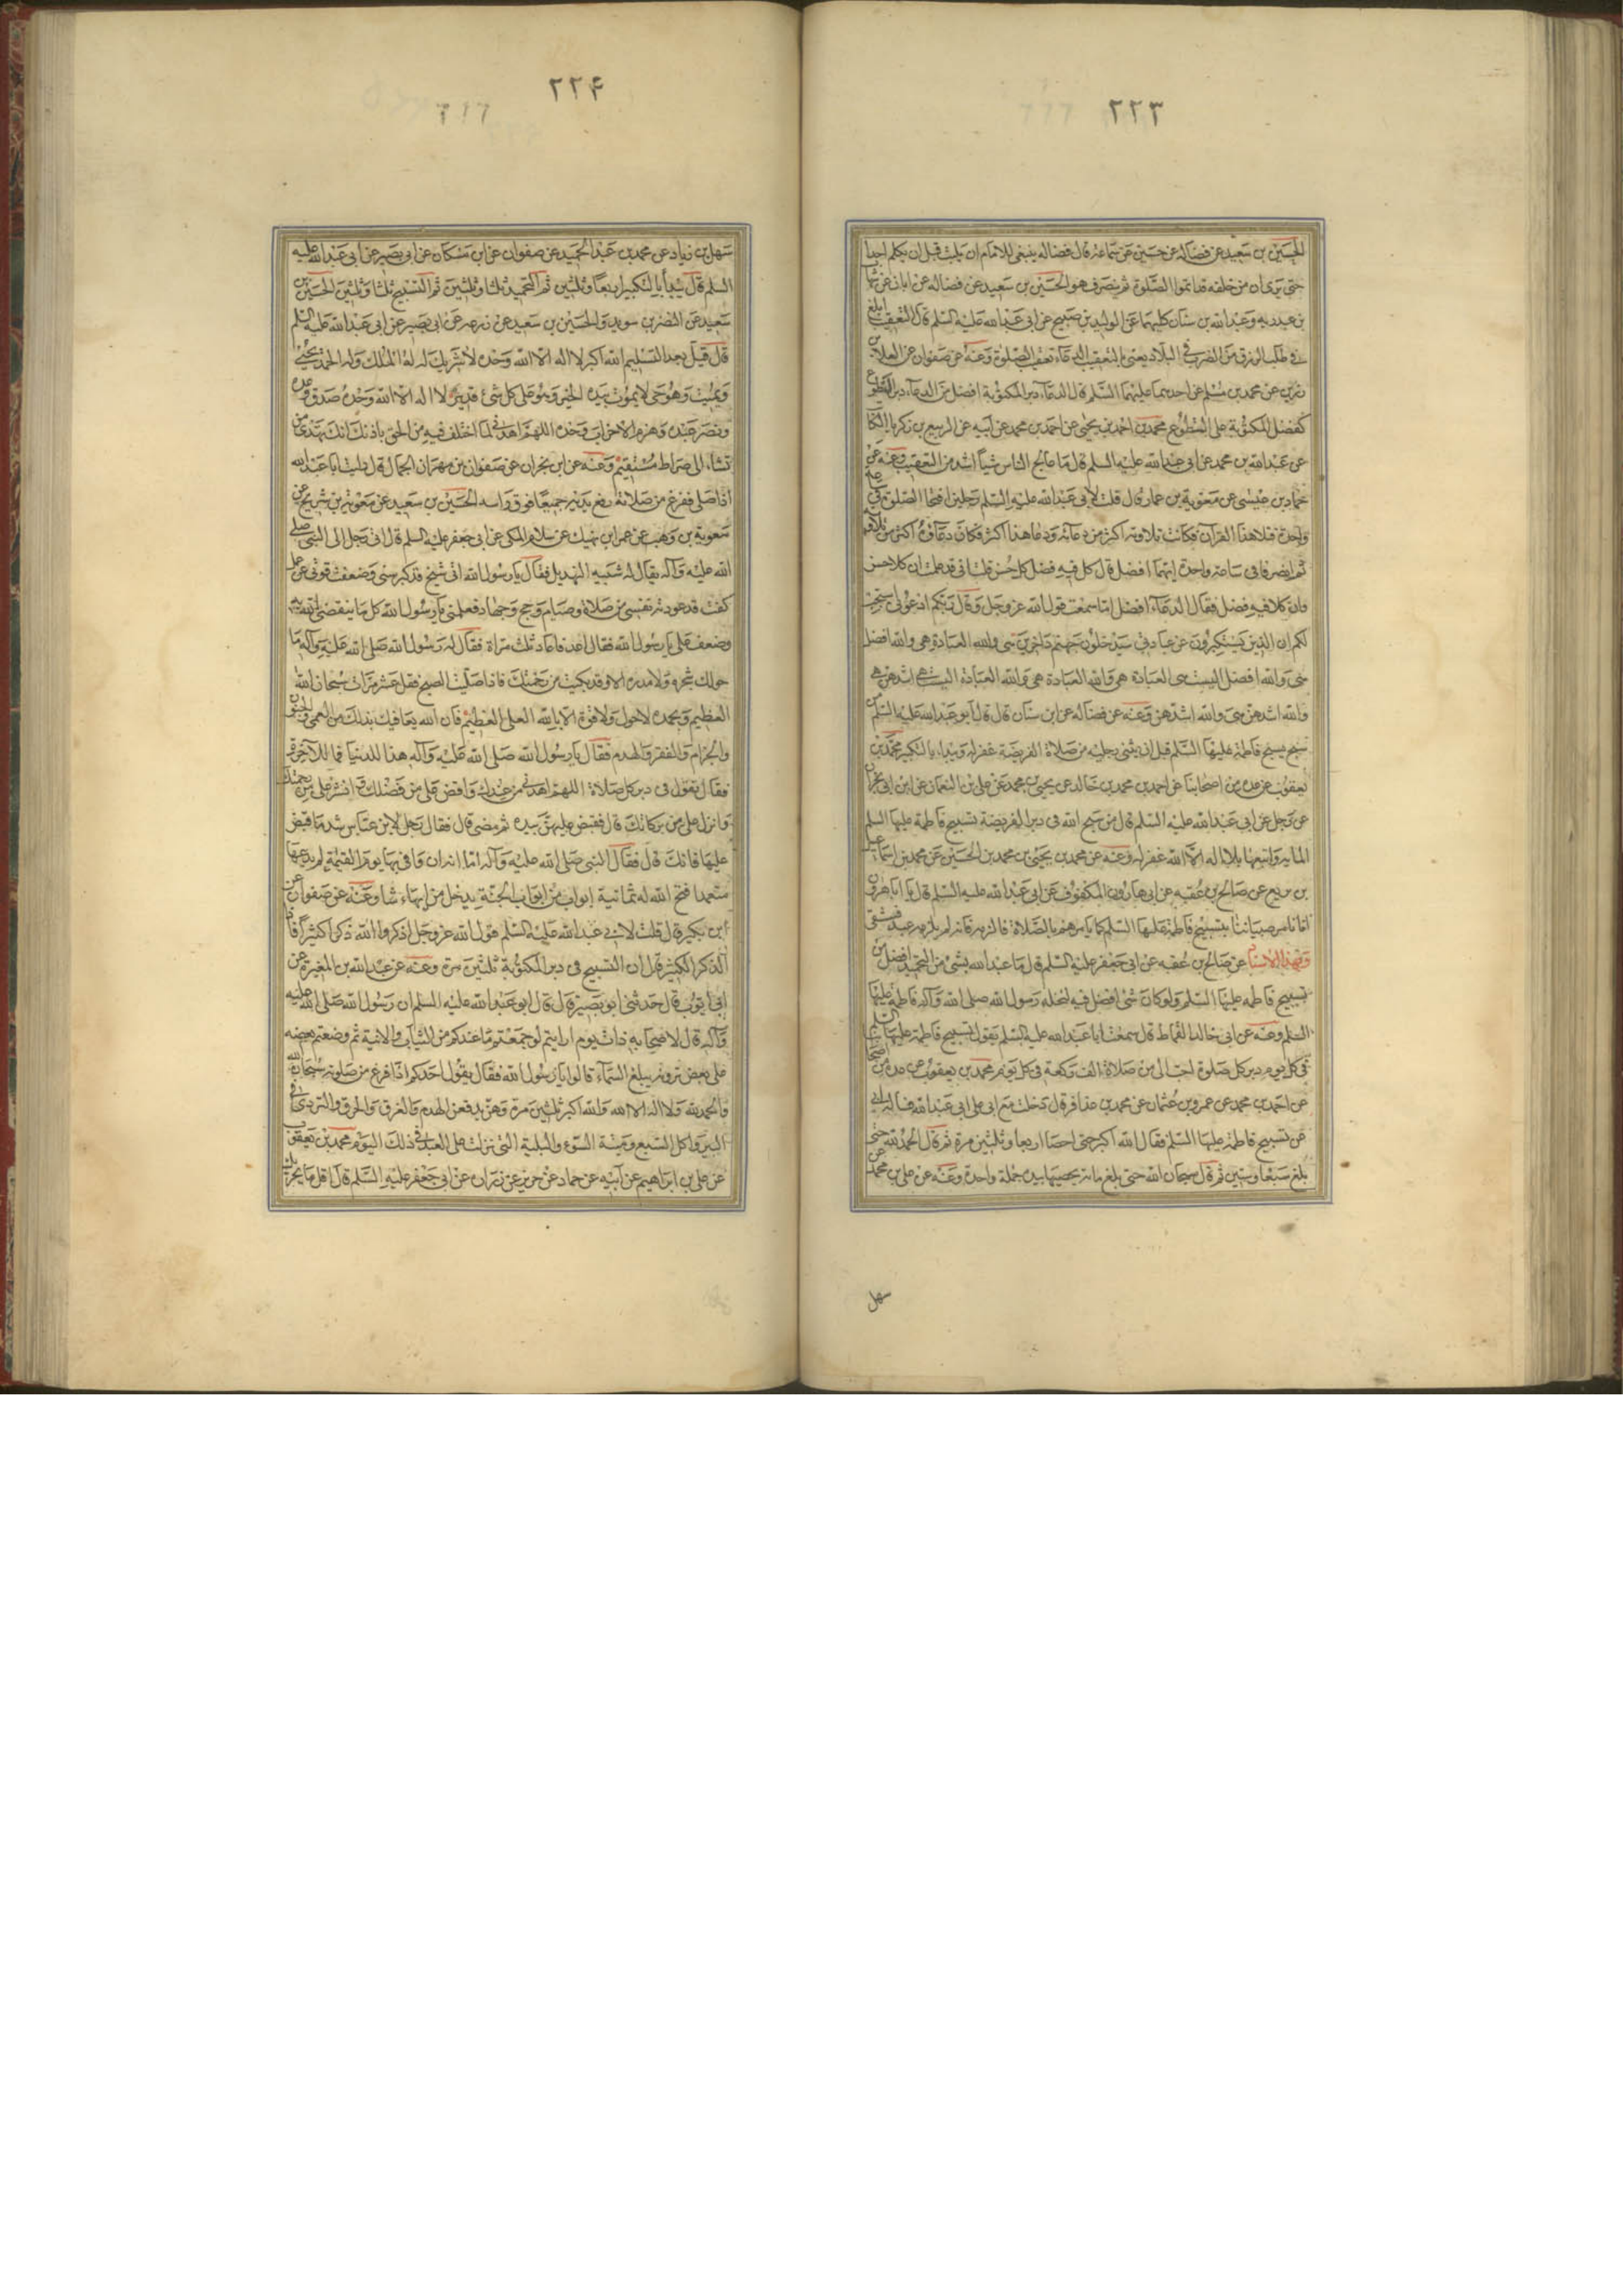 ٢٢٣
الحسين بن سعيد عن فضاله عن حسين عن سماعة قال ينبغى للامام ان يلبث قبل ان يكلم احدا
حتى يرى ان من خلفه قد اتموا الصلوة ثم ينصرف هو الحسين بن سعيد عن فضاله عن ابان عن شها
بن عبدربه وعبد الله بن سنان كليهما عن الوليد بن صبيح عن ابى عبد الله عليه السلم قال التعقيب ابلغ
فى طلب الرزق من الضرب فى البلاد يعنى بالتعقيب الدعاء بعقب الصلوة وعنه عن صفوان عن العلا بن
رزين عن محمد بن مسلم عن احدهما عليهما السلم قال الدعاء دبر المكتوبة افضل من الدعاء دبر التطوع
كفضل المكتوبة على التطوع محمد بن احمد بن يحيى عن احمد بن محمد عن ابيه عن الربيع بن زكريا الكا
عن عبد الله بن محمد عن ابى عبد الله عليه السلم قال ما عالج الناس شيئا اشد من التعقيب وعنه عن
حماد بن عيسى عن معوية بن عمار قال قلت لابى عبد الله عليه السلم رجلين افتتحا الصلوة فى
واحدة فتلا هذا القرآن فكانت تلاوته اكثر من دعائه ودعا هذا اكثر فكان دعاؤه اكثر من تلاوته
ثم انصرفا فى ساعة واحدة ايهما افضل قال كل فيه فضل كل حسن قلت انى قد علمت ان كلا حسن
وان كلا فيه فضل فقال الدعاء افضل اما سمعت قول الله عز وجل وقال ربكم ادعونى استجب
لكم ان الذين يستكبرون عن عبادتى سيدخلون جهنم داخرين هى والله العبادة هى والله افضل
هى والله افضل اليست هى العبادة هى والله العبادة هى والله العبادة اليست هى اشدهن هى
والله اشدهن هى والله اشدهن وعنه عن فضاله عن ابن سنان قال قال ابو عبد الله عليه السلم من
سبح تسبيح فاطمة عليها السلم قبل ان يثنى رجليه من صلاة الفريضة غفر له ويبداء بالتكبير محمد بن
يعقوب عن عدة من اصحابنا عن احمد بن محمد بن خالد عن يحيى بن محمد عن على بن النعمان عن ابن ابى نجران
عن رجل عن ابى عبد الله عليه السلم قال من سبح الله فى دبر الفريضة تسبيح فاطمة عليها السلم
المائة واتبعها بلا اله الا الله غفر له وعنه عن محمد بن يحيى بن محمد بن الحسين عن محمد بن اسماعيل
بن بزيع عن صالح بن عقبه عن ابى هارون المكفوف عن ابى عبد الله عليه السلم قال يا ابا هرون
انا نامر صبياننا بتسبيح فاطمة عليها السلم كما نامرهم بالصلاة فالزمه فانه لم يلزمه عبد فشقى
وبهذا الاسناد عن صالح بن عقبه عن ابى جعفر عليه السلم قال ما عبد الله بشئ من التحميد افضل من
تسبيح فاطمه عليها السلم ولو كان شئ افضل فيه لنحله رسول الله صلى الله وآله فاطمة عليها
السلم وعنه عن ابى خالد القماط قال سمعت ابا عبد الله عليه السلم يقول تسبيح فاطمة عليها السلم
فى كل يوم دبر كل صلوة احب الى من صلاة الف ركعة فى كل يوم محمد بن يعقوب عن عدة من اصحابنا
عن احمد بن محمد عن عمرو بن عثمان عن محمد بن عذافر قال دخلت مع ابى على ابى عبد الله فساله ابى
عن تسبيح فاطمة عليها السلم فقال الله اكبر حتى احصا اربعا وثلثين مرة ثم قال الحمد لله حتى
بلغ سبعا وستين ثم قال سبحان الله حتى بلغ مائة يحصيها بيده جملة واحدة وعنه عن على بن محمد عن
سهل
٢٢۴
سهل بن زياد عن محمد بن عبد الحميد عن صفوان عن ابن مسكان عن ابى بصير عن ابى عبد الله عليه
السلم قال يبدأ بالتكبير اربعا وثلثين ثم التحميد ثلثا وثلثين ثم التسبيح ثلثا وثلثين الحسين بن
سعيد عن النضر بن سويد والحسين بن سعيد عن زرعة عن ابى بصير عن ابى عبد الله عليه السلم
قال قيل بعد التسليم الله اكبر لا اله الا الله وحده لا شريك له له الملك وله الحمد يحيى
ويميت وهو حى لا يموت بيده الخير وهو على كل شئ قدير لا اله الا الله وحده صدق وعده
ونصر عبده وهزم الاحزاب وحده اللهم اهدنى لما اختلف فيه من الحق باذنك انك تهدى من
تشاء الى صراط مستقيم وعنه عن ابن نجران عن صفوان بن مهران الجمال قال رايت ابا عبد الله
اذا صلى ففرغ من صلاته رفع يديه جميعا فوق راسه الحسين بن سعيد عن معوية بن شريح عن
معوية بن وهب عن عمر ابن نهيك عن سلام المكى عن ابى جعفر عليه السلم قال اتى رجل الى النبى صلى
الله عليه وآله يقال له شيبه الهذيل فقال يا رسول الله انى شيخ قد كبر سنى وضعفت قوتى عن عمل
كنت قد عودته نفسى من صلاة وصيام وحج وجهاد فعلمنى يا رسول الله كلاما ينفعنى الله به
وخفف على يا رسول الله فقال اعد فاعاد ثلث مراة فقال له رسول الله صلى الله عليه وآله ما
حولك شجرة ولا مدرة الا وقد بكيت من رحمتك فاذا صليت الصبح فقل عشر مرات سبحان الله
العظيم وبحمده لا حول ولا قوة الا بالله العلى العظيم فان الله يعافيك بذلك من العمى والجنون
والجزام والفقر والهدم فقال يا رسول الله صلى الله عليه وآله هذا للدنيا فما للآخرة
فقال تقول فى دبر كل صلاة اللهم اهدنى من عندك وافض على من فضلك وانشر على من رحمتك
وانزل على من بركاتك قال فقبض عليهن بيده ثم مضى قال فقال رجل لابن عباس ما شد ما قبض
عليها خالك قال فقال النبى صلى الله عليه وآله اما انه ان وافى بها يوم القيمة لم يدعها
متعمدا فتح الله له ثمانية ابواب من ابواب الجنة يدخل من ايها شاء وعنه عن صفوان عن
ابن بكير قال قلت لابى عبد الله عليه السلم قول الله عز وجل اذكروا الله ذكرا كثيرا ما
الذكر الكثير قال ان التسبيح فى دبر المكتوبة ثلثين مرة وعنه عن عبد الله بن المغيرة عن
ابى ايوب قال حدثنى ابو بصير قال قال ابو عبد الله عليه السلم ان رسول الله صلى الله عليه
وآله قال لاصحابه ذات يوم ارايتم لو جمعتم ما عندكم من الثياب والانية ثم وضعتم بعضه
على بعض ترونه يبلغ السماء قالوا يا رسول الله فقال يقول احدكم اذا فرغ من صلوته سبحان الله
والحمد لله ولا اله الا الله والله اكبر ثلثين مرة وهن يدفعن الهدم والغرق والحرق والتردى فى
البير واكل السبع وميتة السوء والبلية التى نزلت على العبد فى ذلك اليوم محمد بن يعقوب
عن على بن ابراهيم عن ابيه عن حماد عن حريز عن زراره عن ابى جعفر عليه السلم قال اقل ما يجزيك